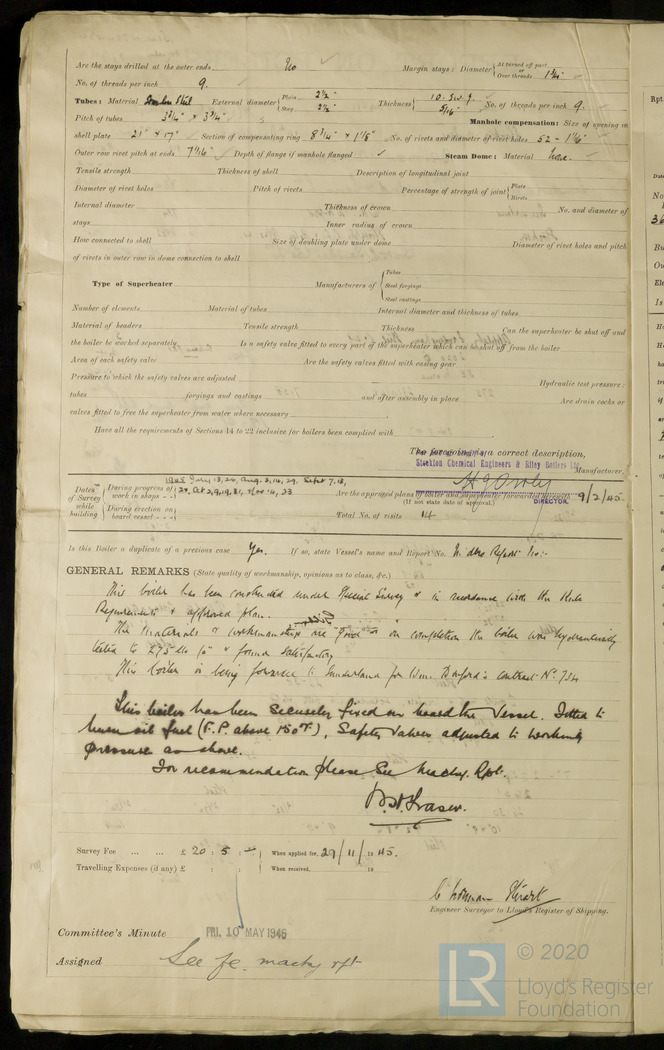 Are the stays drilled at the outer ends No Margin stays: Diameter { At turned off part, or Over threads 1 3/4"
No. of threads per inch 9.
Tubes: Material Steel External diameter { Plain 2 1/2" Stay 2 1/2" Thickness { 10. S.W.G. 5/16" No. of threads per inch 9.
Pitch of tubes 3 3/4" x 3 3/4" Manhole compensation: Size of opening in
shell plate 21" x 17" Section of compensating ring 8 3/4" x 1 1/8" No. of rivets and diameter of rivet holes 52 - 1 1/16"
Outer row rivet pitch at ends 7 1/16" Depth of flange if manhole flanged Steam Dome: Material None.
Tensile strength Thickness of shell Description of longitudinal joint
Diameter of rivet holes Pitch of rivets Percentage of strength of joint { Plate Rivets
Internal diameter Thickness of crown No. and diameter of
stays Inner radius of crown
How connected to shell Size of doubling plate under dome Diameter of rivet holes and pitch
of rivets in outer row in dome connection to shell
Type of Superheater Manufacturers of { Tubes Steel forgings Steel castings
Number of elements Material of tubes Internal diameter and thickness of tubes
Material of headers Tensile strength Thickness Can the superheater be shut off and
the boiler be worked separately Is a safety valve fitted to every part of the superheater which can be shut off from the boiler
Area of each safety valve Are the safety valves fitted with easing gear
Pressure to which the safety valves are adjusted Hydraulic test pressure:
tubes forgings and castings and after assembly in place Are drain cocks or
valves fitted to free the superheater from water where necessary
Have all the requirements of Sections 14 to 22 inclusive for boilers been complied with
The foregoing is a correct description,
Stockton Chemical Engineers & Riley Boilers Ltd.
Manufacturer.
DIRECTOR.
Dates of Survey while building { During progress of work in shops - - 1945 July 13, 26, Aug. 3, 16, 29, Sept 7, 18,
28, Oct 2, 9, 19, 31, Nov 16, 23
During erection on board vessel - - -
Are the approved plans of boiler and superheater forwarded herewith 9/2/45.
(If not state date of approval.)
Total No. of visits 14
Is this Boiler a duplicate of a previous case Yes. If so, state Vessel's name and Report No.
GENERAL REMARKS (State quality of workmanship, opinions as to class, &c.)
This boiler has been constructed under Special Survey & in accordance with the Rule
Requirements & approved plan.
The materials & workmanship are good & on completion the boiler was hydraulically
tested to 275 lbs □" & found satisfactory.
This boiler is being forwarded to Sunderland for Wm. Doxford's contract No. 734
This boiler has been securely fixed on board the vessel. Fitted to
burn oil fuel (F.P. above 150°F.), Safety Valves adjusted to working
pressure as above.
For recommendation please See Machy. Rpt.
Fraser.
Survey Fee ... ... £ 20 : 5 : - When applied for, 29/11/1945.
Travelling Expenses (if any) £ : : When received, 19
Engineer Surveyor to Lloyd's Register of Shipping.
Committee's Minute FRI. 10 MAY 1946
Assigned See f.e. machy rpt
LR
© 2020
Lloyd's Register
Foundation
Rpt.